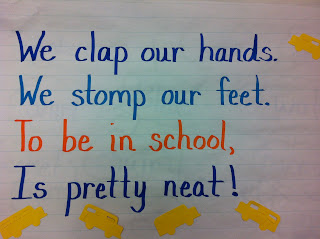 We clap our hands.
We stomp our feet.
To be in school,
Is pretty neat!